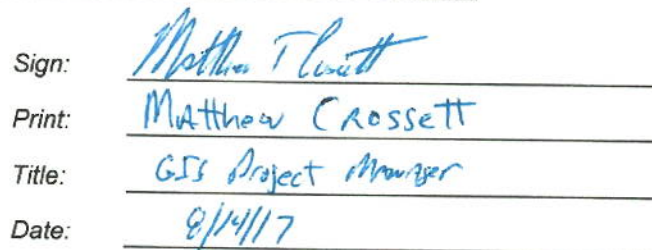 Sign: Matthew T Crossett
Print: Matthew Crossett
Title: GIS Project Manager
Date: 8/14/17